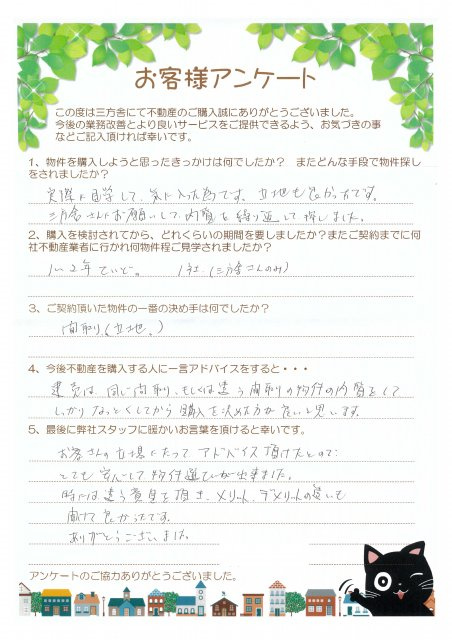 お客様アンケート
この度は三方舎にて不動産のご購入誠にありがとうございました。
今後の業務改善とより良いサービスをご提供できるよう、お気づきの事
などご記入頂ければ幸いです。
1、物件を購入しようと思ったきっかけは何でしたか？ またどんな手段で物件探し
をされましたか？
実際に見学して、気に入った為です。立地も良かったです。
三方舎さんにお願いして、内覧を繰り返して探しました。
2、購入を検討されてから、どれくらいの期間を要しましたか？またご契約までに何
社不動産業者に行かれ何物件程ご見学されましたか？
1～2年ていど。 1社（三方舎さんのみ）
3、ご契約頂いた物件の一番の決め手は何でしたか？
間取り（立地。）
4、今後不動産を購入する人に一言アドバイスをすると・・・
同じ間取り、もしくは違う間取りの物件の内覧をして
しっかりなっとくしてから購入を決めた方が良いと思います。
5、最後に弊社スタッフに暖かいお言葉を頂けると幸いです。
お客さんの立場にたってアドバイス頂けたので、
とても安心して物件選びが出来ました。
時には違う意見も頂き、メリット、デメリットの違いも
聞けて良かったです。
ありがとうございました。
アンケートのご協力ありがとうございました。